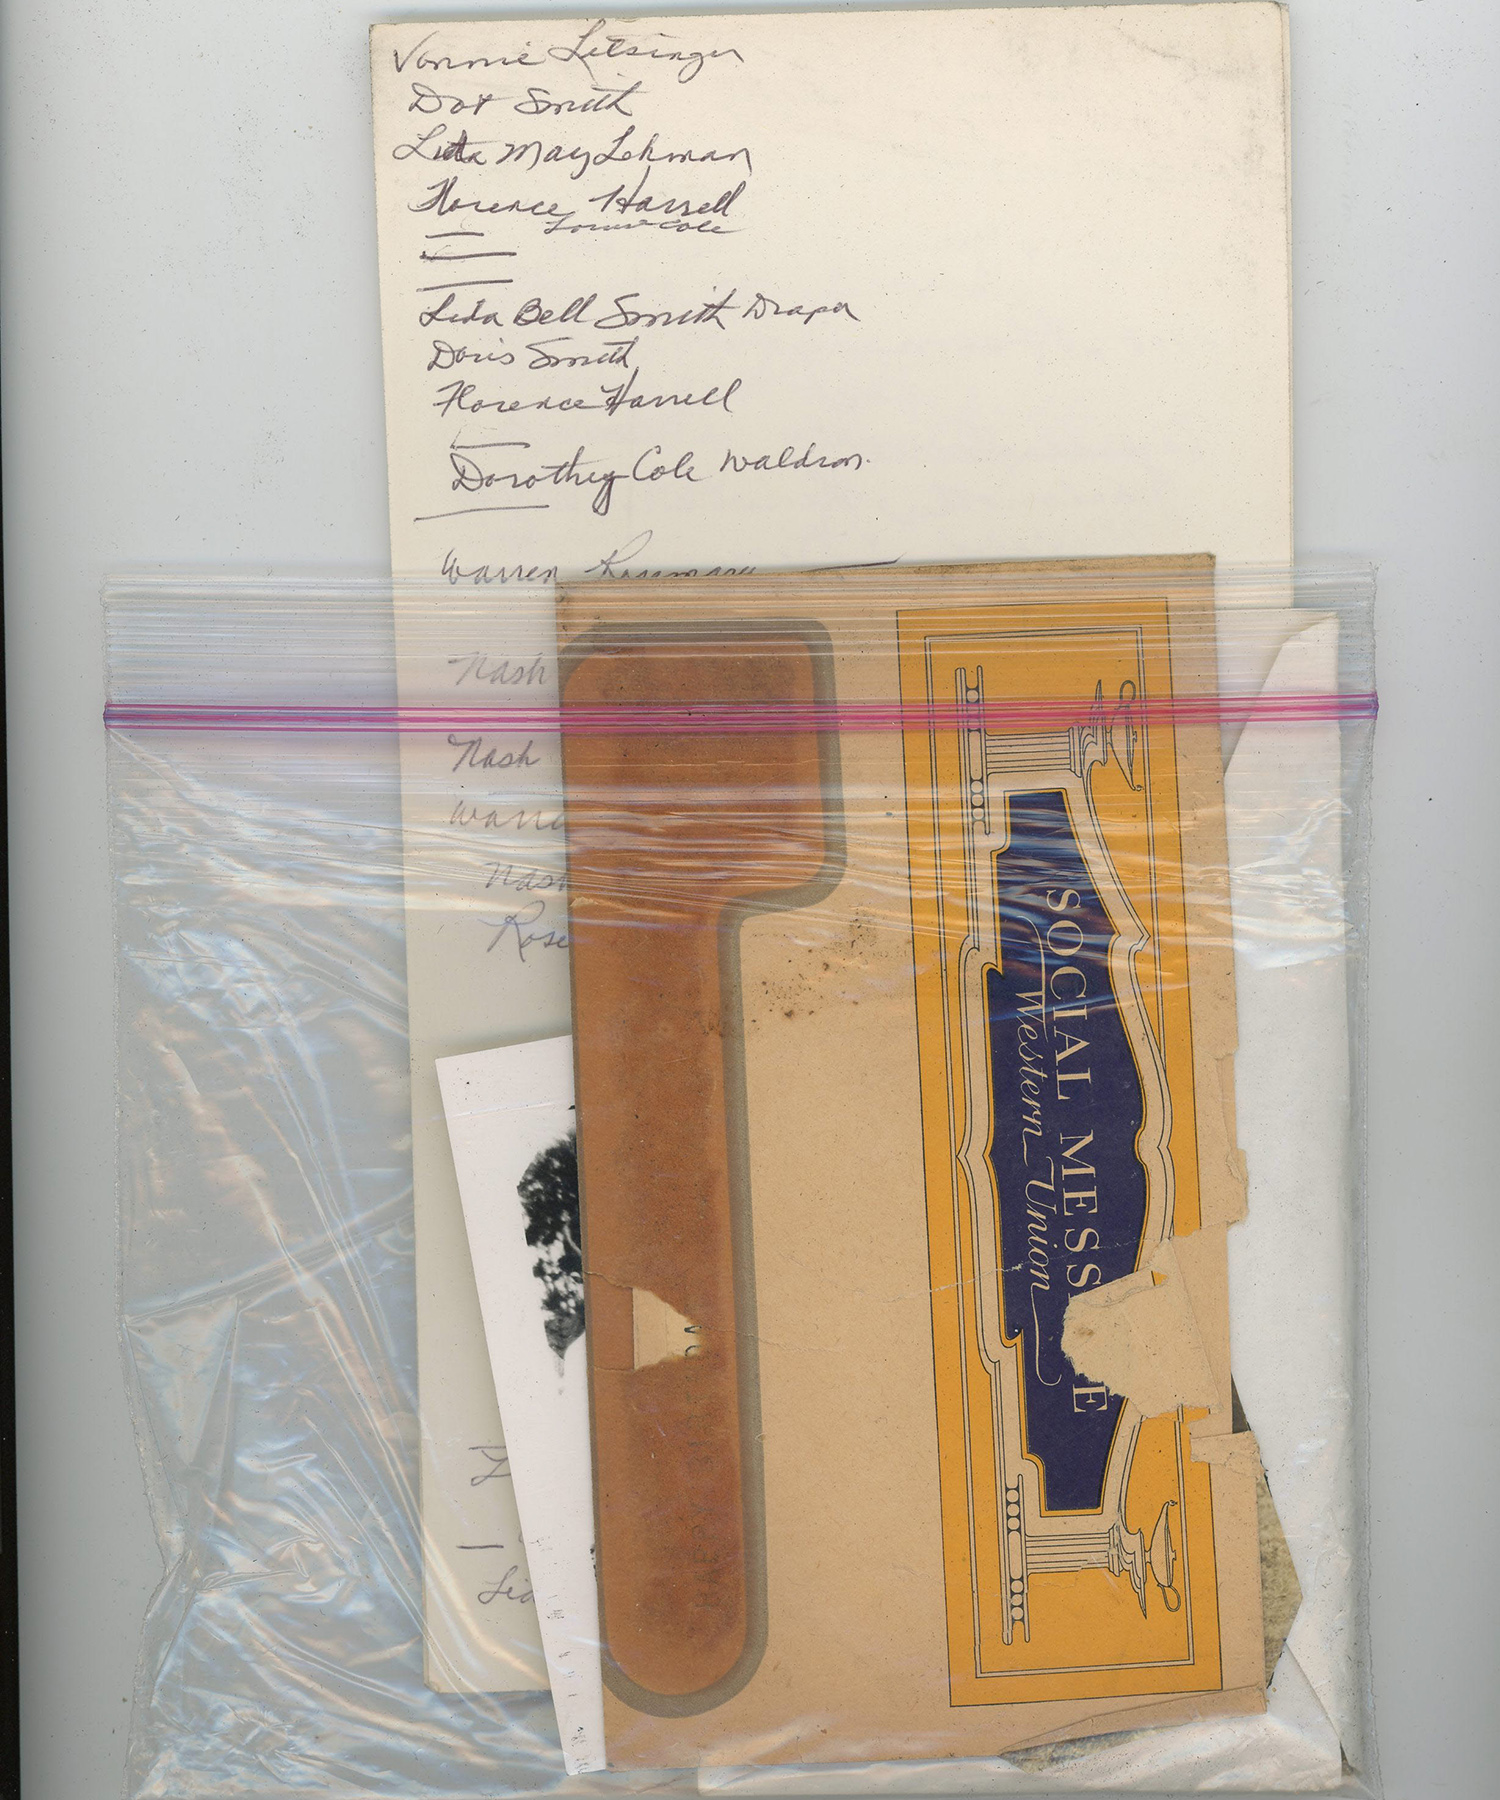 Vonnie Letsinger
Dot Smith
May Lehman
Florence Harrell
Louise Cole
Lida Bell Smith Draper
Doris Smith
Florence Harrell
Dorothy Cole Waldron.
Warren Rosemary
Nash
Nash
Warre
Nash
Rose
SOCIAL MESS E
Western Union